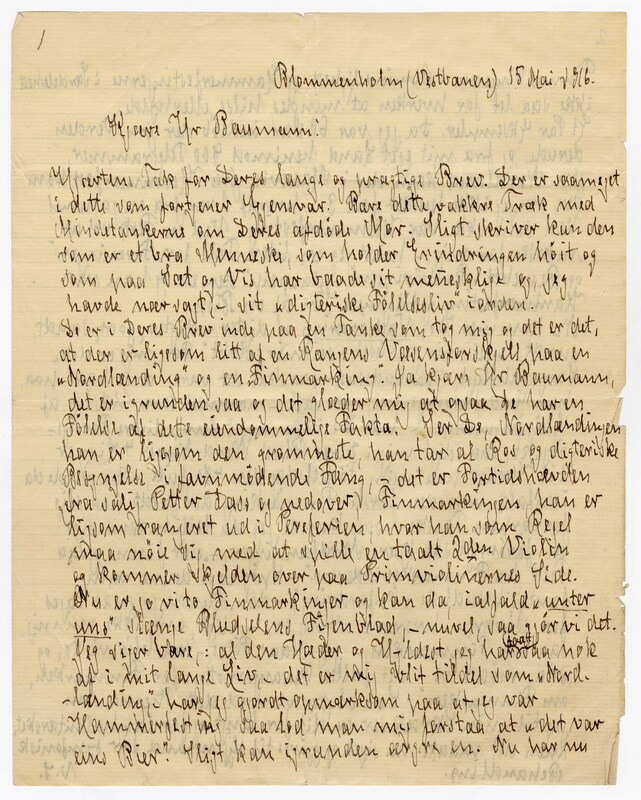 1
Blommenholm (Vestbanen) 15 Mai 1916.
Kjære Hr Baumann!
Hjertens Tak for Deres lange og prægtige Brev. Der er saameget
i dette som fortjener Gjensvar. Bare dette vakkre Træk med
Mindetankerne om Deres afdøde Mor. Sligt skriver kun den
som er et bra Menneske, som holder Erindringen høit og
som paa Sæt og Vis har baade sit mennesklige og, jeg
havde nær sagt, – sit „digteriske Følelsesliv" iorden.
De er i Deres Brev inde paa en Tanke som tog mig og det er det,
at der er ligesom litt af en Rangens Væsensforskjel paa en
„Nordlænding" og en „Finmarking". Ja kjære Hr Baumann,
det er igrunden saa og det glæder mig at ogsaa De har en
Følelse af dette eiendommelige Fakta. Ser De, Nordlændingen
han er ligesom den grommeste, han tar al Ros og digteriske
Besyngelse i favnmødende Fang, – det er Fortidshævden
fra salig Petter Dass og nedover. Finmarkingen han er
ligsom rangeret ud i Pereferien, hvor han som Regel
maa nøie sig med at spille en taalt 2den Violin
og kommer skjelden over paa Primviolinernes Side.
Nu er jo vi to Finmarkinger og kan da ialfald „unter
uns" slænge Bludselens Figenblad, – nuvel, saa gjør vi det.
Jeg siger bare, : al den Hæder og Hyldest jeg har faat saa nok
af i mit lange Liv, – det er mig blit tildelt som „Nord-
-lænding", – har jeg gjordt opmærksom paa at jeg var
Hammerfesting saa lod man mig forstaa at „det var
eins Bier". Sligt kan igrunden ærgre en. Nu har nu